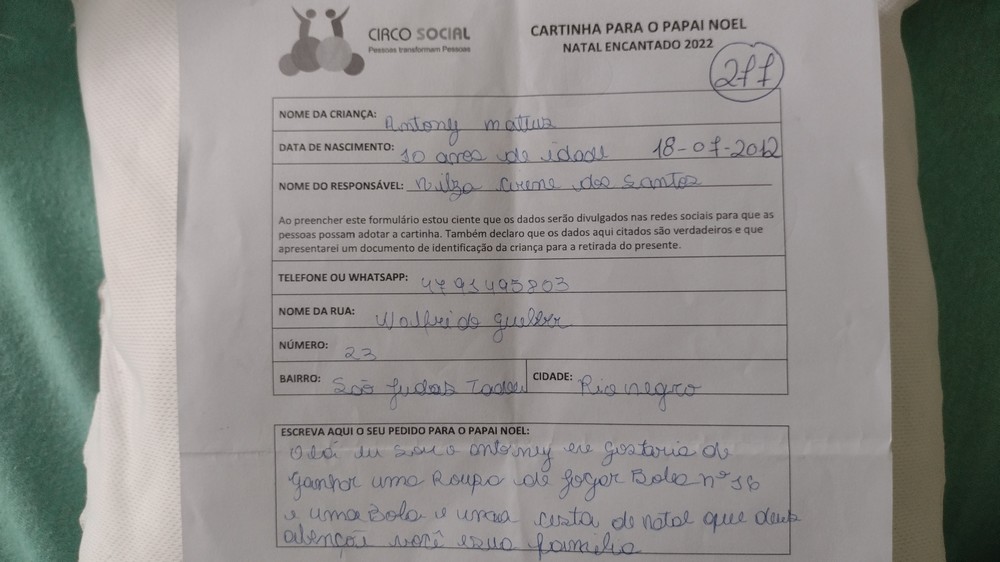 CIRCO SOCIAL
Pessoas transformam Pessoas
CARTINHA PARA O PAPAI NOEL
NATAL ENCANTADO 2022
277
NOME DA CRIANÇA: Antony mateus
DATA DE NASCIMENTO: 10 anos de idade 18-07-2012
NOME DO RESPONSÁVEL: Nilza dos Santos
Ao preencher este formulário estou ciente que os dados serão divulgados nas redes sociais para que as
pessoas possam adotar a cartinha. Também declaro que os dados aqui citados são verdadeiros e que
apresentarei um documento de identificação da criança para a retirada do presente.
TELEFONE OU WHATSAPP: 4791495803
NOME DA RUA: Walfrido
NÚMERO: 23
BAIRRO: São Judas Tadeu CIDADE: Rio negro
ESCREVA AQUI O SEU PEDIDO PARA O PAPAI NOEL:
Olá eu sou o antony eu gostaria de
ganhar uma Roupa de jogar Bola nº 16
e uma Bola e uma cesta de natal que deus
abençoi você e sua familia